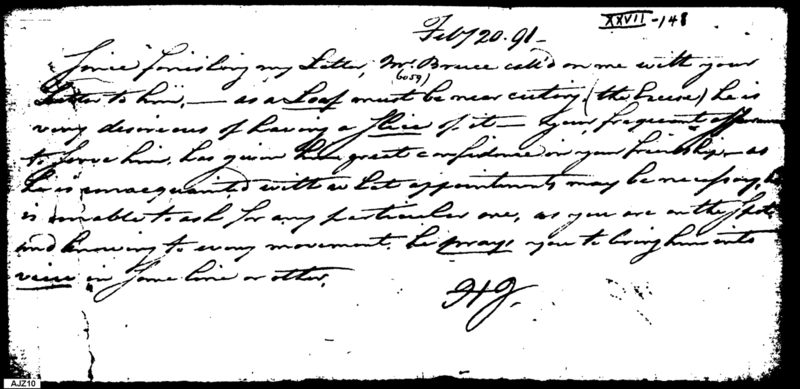 XXVII-148
Feby 20. 91-
Since finishing my Letter, Mr. Bruce call'd on me with your
Letter to him, — as a Loaf must be near cuting, (the Excise) he is
very desireous of having a Slice of it — Your frequent
to serve him, has given him great confidence in your friendship — as
he is unacquainted with what appointments may be necessary, he
is unable to ask for any particular one, as you are on the Spot
and knowing to every movement, he prays you to bring him into
view in some line or other.
HJ.
AJZ10